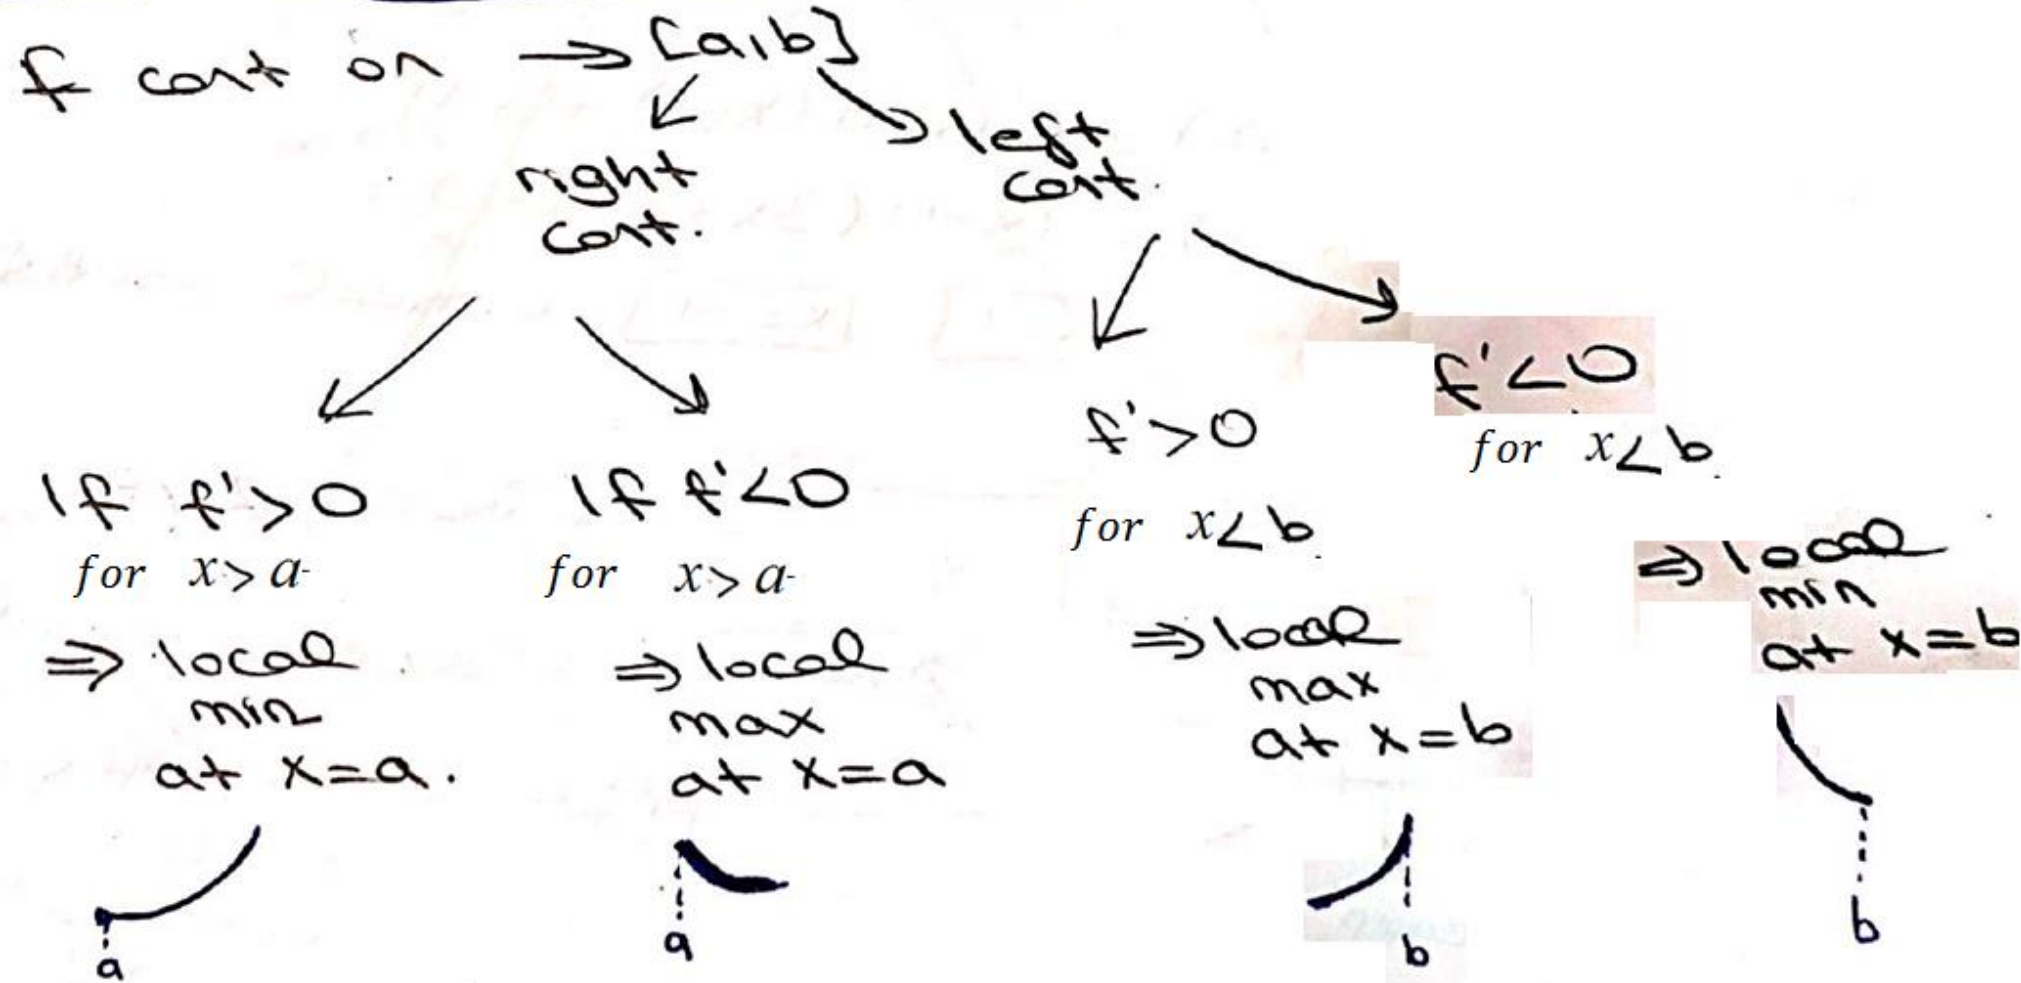 f cont on → [a,b]
right
cont.
left
cont.
If f'>0
for x>a
⇒ local
min
at x=a.
a
If f'<0
for x>a
⇒ local
max
at x=a
a
f'>0
for x<b.
⇒ local
max
at x=b
b
f'<0
for x<b.
⇒ local
min
at x=b
b